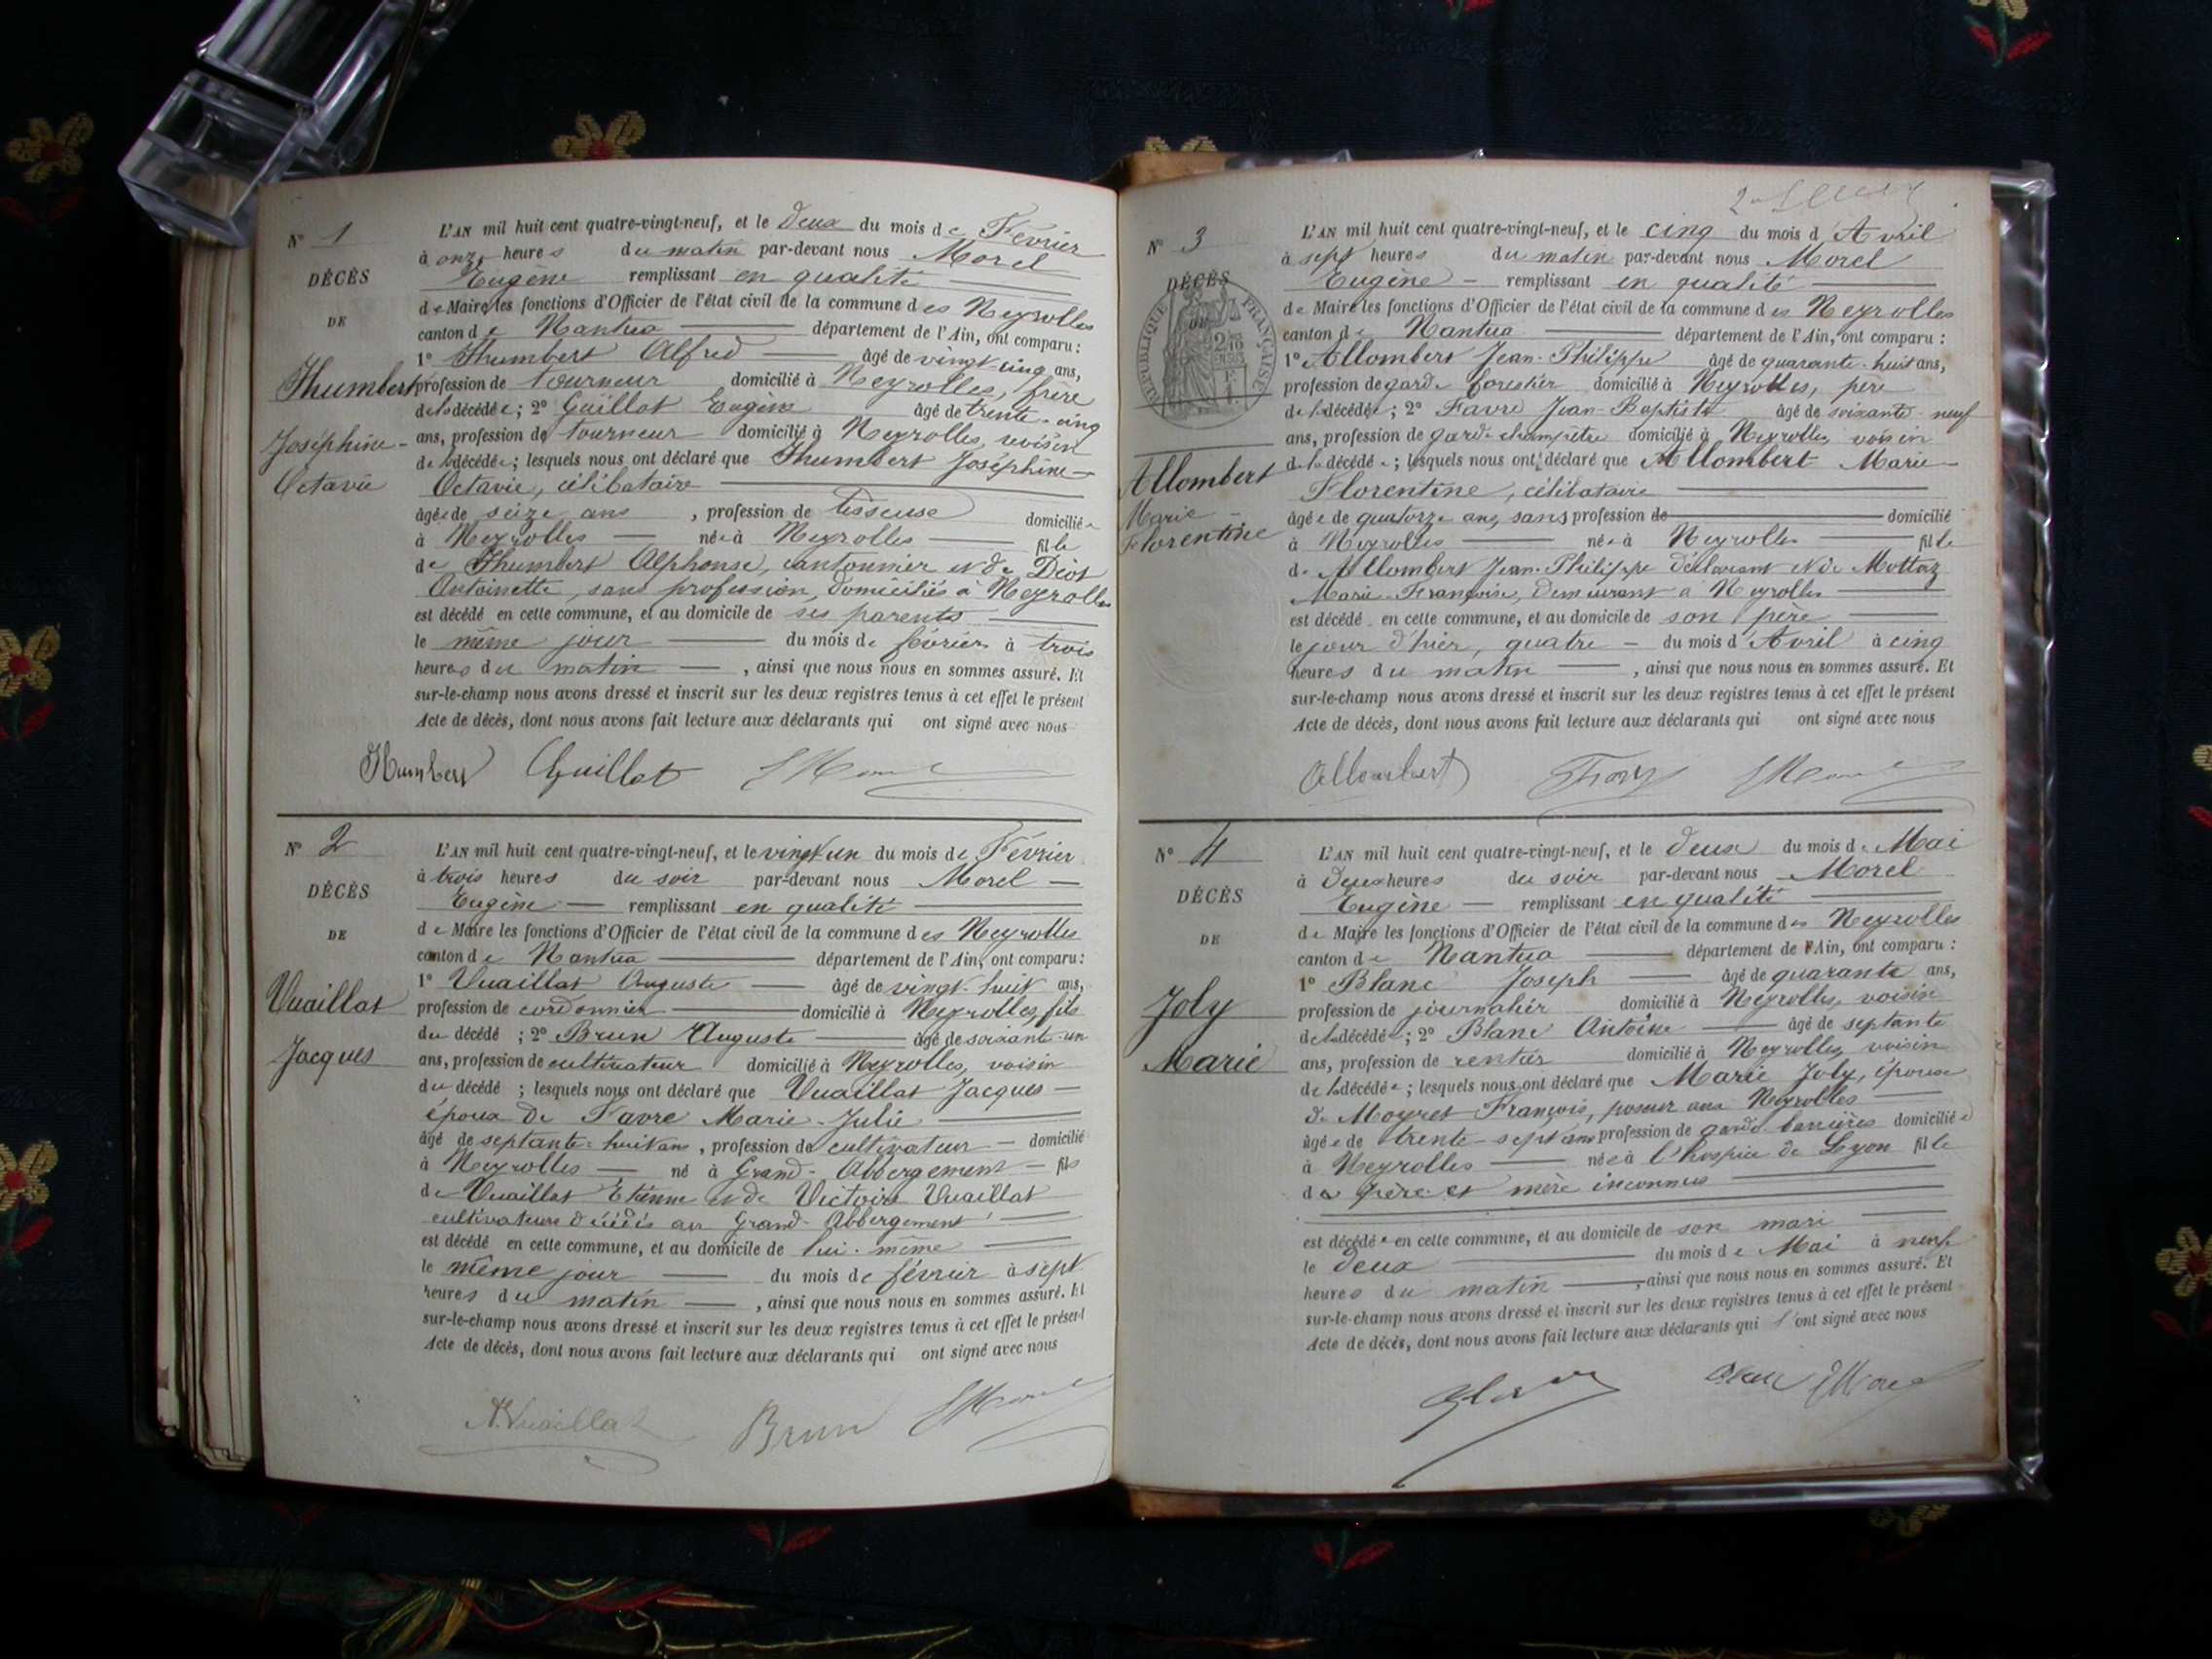 N° 1
DÉCÈS
DE
Humbert
Joséphine-
Octavie
L'AN mil huit cent quatre-vingt-neuf, et le Deux du mois de Février
à onze heures du matin par-devant nous Morel
Eugène remplissant en qualité
de Maire les fonctions d'Officier de l'état civil de la commune des Neyrolles
canton de Nantua département de l'Ain, ont comparu :
1° Humbert Alfred âgé de vingt cinq ans,
profession de tourneur domicilié à Neyrolles, frère
de la décédée ; 2° Guillot Eugène âgé de trente-cinq
ans, profession de tourneur domicilié à Neyrolles, voisin
de la décédée ; lesquels nous ont déclaré que Humbert Joséphine-
Octavie, célibataire
âgée de seize ans , profession de tisseuse domiciliée
à Neyrolles née à Neyrolles fille
de Humbert Alphonse, cantonnier et de Diot
Antoinette, sans profession, domiciliés à Neyrolles
est décédé en cette commune, et au domicile de ses parents
le même jour du mois de février à trois
heures du matin , ainsi que nous nous en sommes assuré. Et
sur-le-champ nous avons dressé et inscrit sur les deux registres tenus à cet effet le présent
Acte de décès, dont nous avons fait lecture aux déclarants qui ont signé avec nous
Humbert Guillot
N° 2
DÉCÈS
DE
Vuaillat
Jacques
L'AN mil huit cent quatre-vingt-neuf, et le vingt un du mois de Février
à trois heures du soir par-devant nous Morel
Eugène remplissant en qualité
de Maire les fonctions d'Officier de l'état civil de la commune des Neyrolles
canton de Nantua département de l'Ain, ont comparu :
1° Vuaillat Auguste âgé de vingt-huit ans,
profession de cordonnier domicilié à Neyrolles, fils
du décédé ; 2° Brun Auguste âgé de soixante-un
ans, profession de cultivateur domicilié à Neyrolles, voisin
du décédé ; lesquels nous ont déclaré que Vuaillat Jacques
époux de Favre Marie-Julie
âgé de septante-huit ans , profession de cultivateur domicilié
à Neyrolles né à Grand-Abbergement fils
de Vuaillat Etienne et de Victoire Vuaillat
cultivateurs décédés au Grand-Abbergement
est décédé en cette commune, et au domicile de lui-même
le même jour du mois de février à sept
heures du matin , ainsi que nous nous en sommes assuré. Et
sur-le-champ nous avons dressé et inscrit sur les deux registres tenus à cet effet le présent
Acte de décès, dont nous avons fait lecture aux déclarants qui ont signé avec nous
A. Vuaillat Brun
N° 3
DÉCÈS
RÉPUBLIQUE FRANÇAISE
Allombert
Marie-
Florentine
L'AN mil huit cent quatre-vingt-neuf, et le cinq du mois d'Avril
à sept heures du matin par-devant nous Morel
Eugène remplissant en qualité
de Maire les fonctions d'Officier de l'état civil de la commune des Neyrolles
canton de Nantua département de l'Ain, ont comparu :
1° Allombert Jean-Philippe âgé de quarante-huit ans,
profession de garde forestier domicilié à Neyrolles, père
de la décédée ; 2° Favre Jean-Baptiste âgé de soixante-neuf
ans, profession de garde champêtre domicilié à Neyrolles voisin
de la décédée ; lesquels nous ont déclaré que Allombert Marie-
Florentine, célibataire
âgée de quatorze ans, sans profession de domicilié
à Neyrolles née à Neyrolles fille
de Allombert Jean-Philippe déclarant et de Mottaz
Marie-Françoise, demeurant à Neyrolles
est décédé en cette commune, et au domicile de son père
le jour d'hier, quatre du mois d'Avril à cinq
heures du matin , ainsi que nous nous en sommes assuré. Et
sur-le-champ nous avons dressé et inscrit sur les deux registres tenus à cet effet le présent
Acte de décès, dont nous avons fait lecture aux déclarants qui ont signé avec nous
Allombert
N° 4
DÉCÈS
DE
Joly
Marie
L'AN mil huit cent quatre-vingt-neuf, et le deux du mois de Mai
à deux heures du soir par-devant nous Morel
Eugène remplissant en qualité
de Maire les fonctions d'Officier de l'état civil de la commune des Neyrolles
canton de Nantua département de l'Ain, ont comparu :
1° Blanc Joseph âgé de quarante ans,
profession de journalier domicilié à Neyrolles, voisin
de la décédée ; 2° Blanc Antoine âgé de septante
ans, profession de rentier domicilié à Neyrolles voisin
de la décédée ; lesquels nous ont déclaré que Marie Joly, épouse
de Moyret François, poseur aux Neyrolles
âgée de trente-sept ans profession de garde-barrières domiciliée
à Neyrolles née à l'hospice de Lyon fille
de père et mère inconnus
est décédée en cette commune, et au domicile de son mari
le deux du mois de Mai à neuf
heures du matin , ainsi que nous nous en sommes assuré. Et
sur-le-champ nous avons dressé et inscrit sur les deux registres tenus à cet effet le présent
Acte de décès, dont nous avons fait lecture aux déclarants qui ont signé avec nous